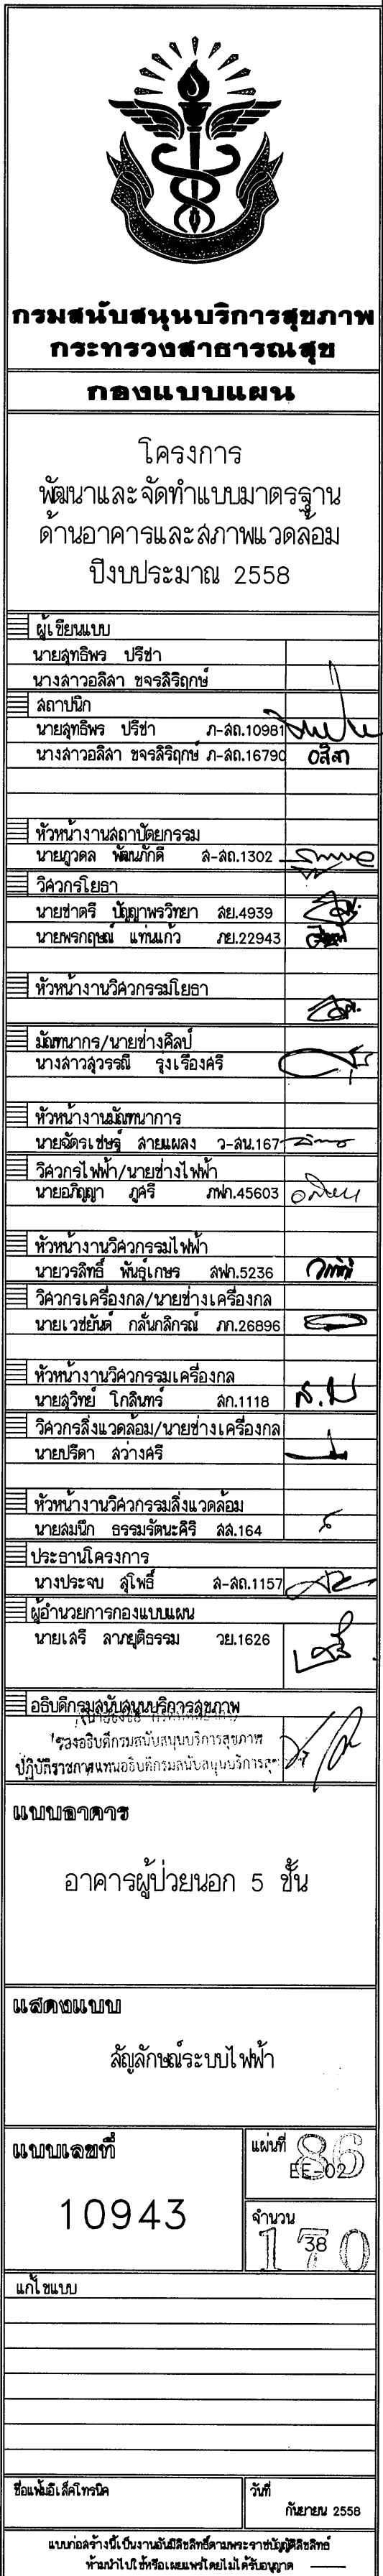 กรมสนับสนุนบริการสุขภาพ
กระทรวงสาธารณสุข
กองแบบแผน
โครงการ
พัฒนาและจัดทำแบบมาตรฐาน
ด้านอาคารและสภาพแวดล้อม
ปีงบประมาณ 2558
ผู้เขียนแบบ
นายสุทธิพร ปรีชา
นางสาวอลิสา ขจรสิริฤกษ์
สถาปนิก
นายสุทธิพร ปรีชา ภ-สถ.10981
นางสาวอลิสา ขจรสิริฤกษ์ ภ-สถ.16790
อลิสา
หัวหน้างานสถาปัตยกรรม
นายภูวดล พัฒนภักดี ส-สถ.1302
วิศวกรโยธา
นายชาตรี ปัญญาพรวิทยา สย.4939
นายพรกฤษณ์ แท่นแก้ว ภย.22943
หัวหน้างานวิศวกรรมโยธา
มัณฑนากร/นายช่างศิลป์
นางสาวสุวรรณี รุ่งเรืองศรี
หัวหน้างานมัณฑนาการ
นายฉัตรเชษฐ์ สายแผลง ว-สน.167
วิศวกรไฟฟ้า/นายช่างไฟฟ้า
นายอภิญญา ภูศรี ภฟก.45603
หัวหน้างานวิศวกรรมไฟฟ้า
นายวรสิทธิ์ พันธุ์เกษร สฟก.5236
วิศวกรเครื่องกล/นายช่างเครื่องกล
นายเวชยันต์ กลั่นกสิกรณ์ ภก.26896
หัวหน้างานวิศวกรรมเครื่องกล
นายสุวิทย์ โกสินทร์ สก.1118
วิศวกรสิ่งแวดล้อม/นายช่างเครื่องกล
นายปรีดา สว่างศรี
หัวหน้างานวิศวกรรมสิ่งแวดล้อม
นายสมนึก ธรรมรัตนะศิริ สส.164
ประธานโครงการ
นางประจบ สุโพธิ์ ส-สถ.1157
ผู้อำนวยการกองแบบแผน
นายเสรี ลาภยุติธรรม วย.1626
อธิบดีกรมสนับสนุนบริการสุขภาพ
รองอธิบดีกรมสนับสนุนบริการสุขภาพ
ปฏิบัติราชการแทนอธิบดีกรมสนับสนุนบริการสุข
แบบอาคาร
อาคารผู้ป่วยนอก 5 ชั้น
แสดงแบบ
สัญลักษณ์ระบบไฟฟ้า
แบบเลขที่
10943
แผ่นที่
86
EE-02
จำนวน
170
38
แก้ไขแบบ
ชื่อแฟ้มอิเล็คโทรนิค
วันที่
กันยายน 2558
แบบก่อสร้างนี้เป็นงานอันมีลิขสิทธิ์ตามพระราชบัญญัติลิขสิทธ์
ห้ามนำไปใช้หรือเผยแพร่โดยไม่ได้รับอนุญาต